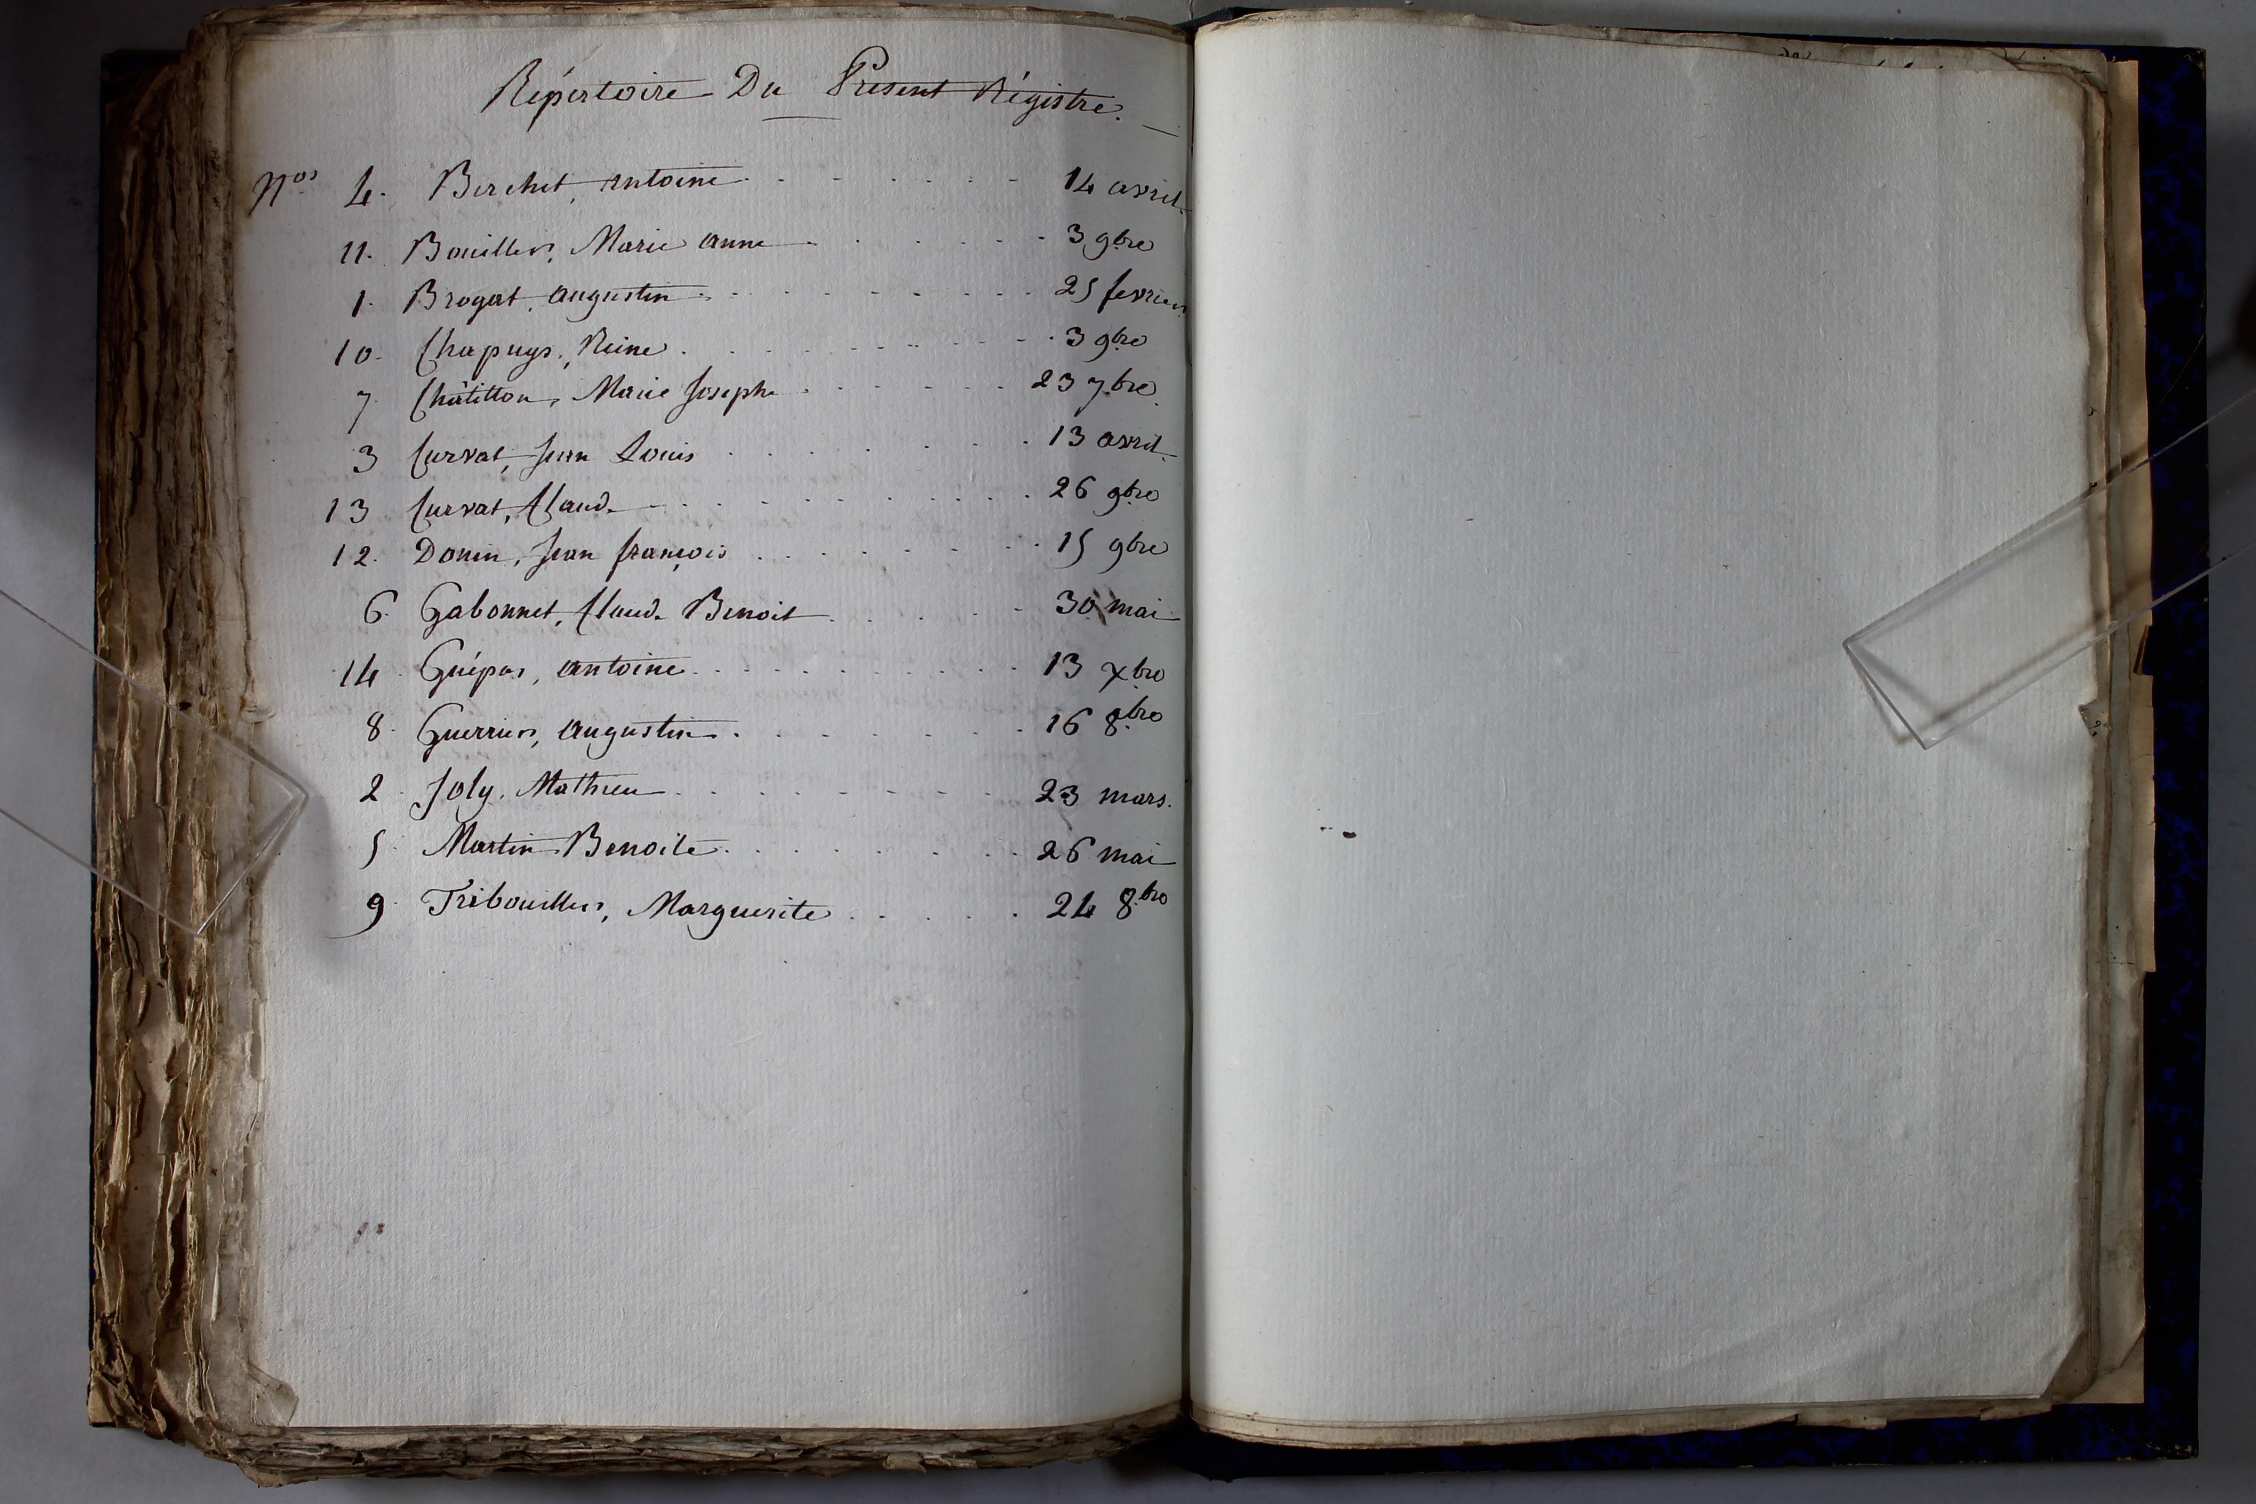 Répertoire Du Present Régistre.
Nos 4. Berchet, antoine 14 avril.
11. Bouiller, Marie anne 3 9bre
1. Brogat, augustin 25 fevrier
10. Chapuys, Reine 3 9bre
7 Châtillon, Marie Joseph 23 7bre
3 Curvat, Jean Louis 13 avril.
13 Curvat, Claud. 26 9bre
12. Donin, Jean françois 15 9bre
6. Gabonnet, Claud. Benoit 30 mai
14 Guépar, antoine 13 xbre
8. Guerrier, augustin 16 8bre
2 Joly, Mathieu 23 mars.
5. Martin Benoite 26 mai
9. Tribouiller, Marguerite 24 8bre